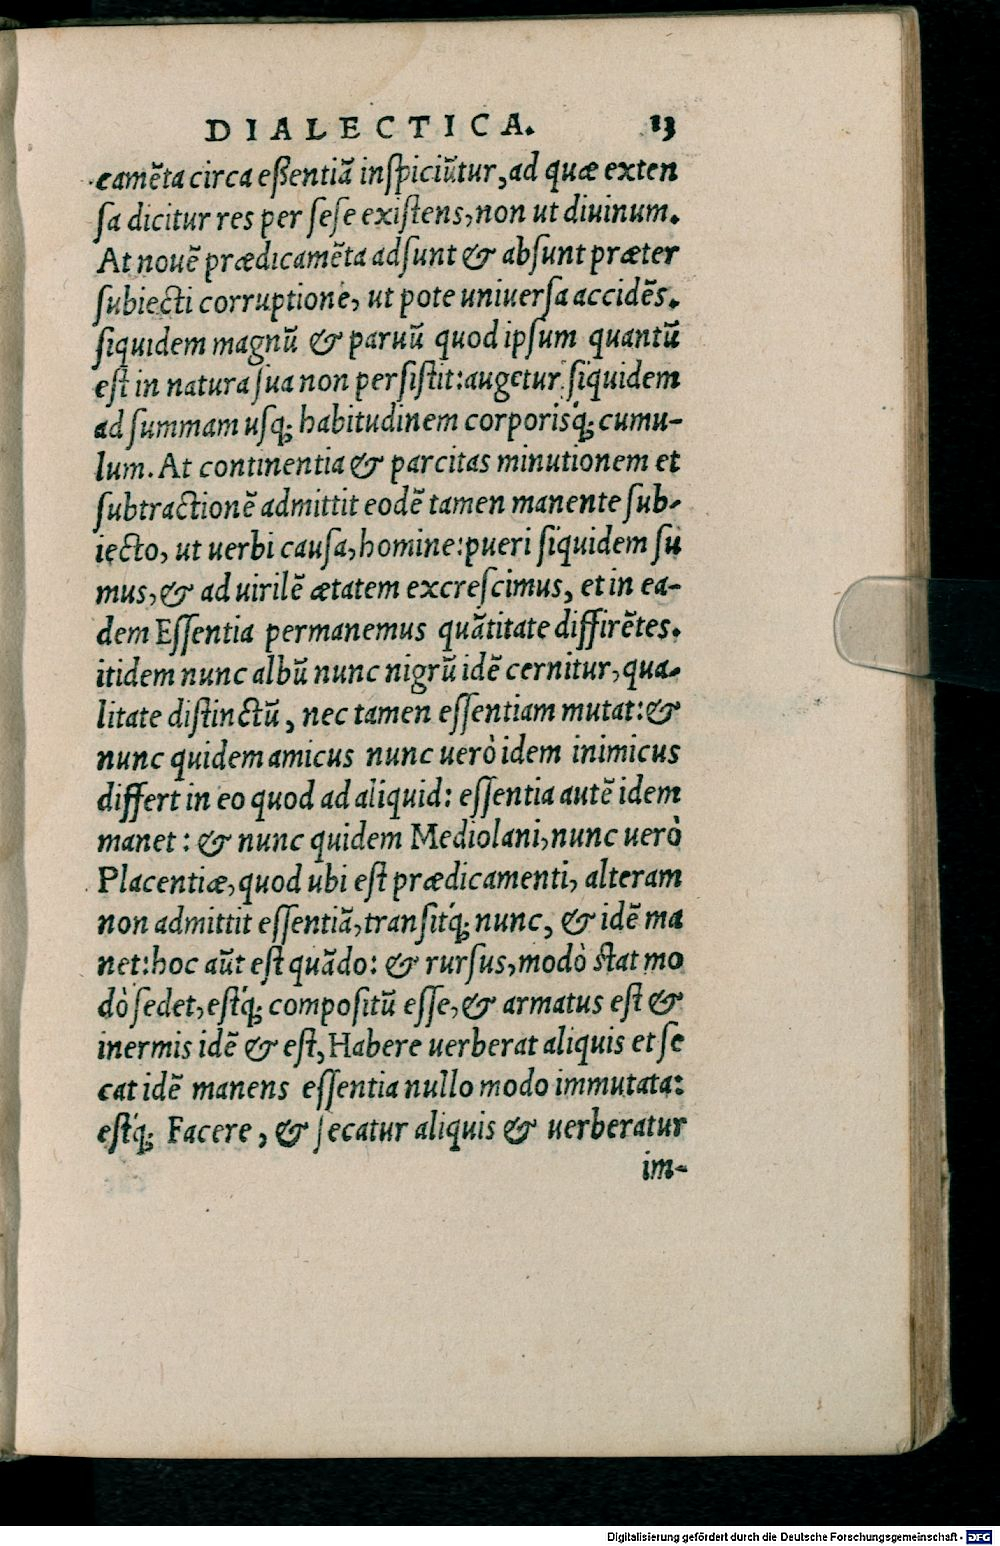 DIALECTICA. 13
camẽta circa eßentiã inſpiciũtur, ad quæ exten
ſa dicitur res per ſeſe exiſtens, non ut diuinum.
At nouẽ prædicamẽta adſunt & abſunt præter
ſubiecti corruptione, ut pote uniuerſa accidẽs.
ſiquidem magnũ & paruũ quod ipſum quantũ
eſt in natura ſua non perſiſtit: augetur ſiquidem
ad ſummam uſq; habitudinem corporisq́; cumu-
lum. At continentia & parcitas minutionem et
ſubtractionẽ admittit eodẽ tamen manente ſub-
iecto, ut uerbi cauſa, homine: pueri ſiquidem ſu
mus, & ad uirilẽ ætatem excreſcimus, et in ea-
dem Eſſentia permanemus quãtitate diffirẽtes.
itidem nunc albũ nunc nigrũ idẽ cernitur, qua-
litate diſtinctũ, nec tamen eſſentiam mutat: &
nunc quidem amicus nunc uerò idem inimicus
differt in eo quod ad aliquid: eſſentia autẽ idem
manet: & nunc quidem Mediolani, nunc uerò
Placentiæ, quod ubi eſt prædicamenti, alteram
non admittit eſſentiã, tranſitq́; nunc, & idẽ ma
net: hoc aũt eſt quãdo: & rurſus, modò ſtat mo
dò ſedet, eſtq́; compoſitũ eſſe, & armatus eſt &
inermis idẽ & eſt, Habere uerberat aliquis et ſe
cat idẽ manens eſſentia nullo modo immutata:
eſtq́; Facere, & ſecatur aliquis & uerberatur
im-
Digitalisierung gefördert durch die Deutsche Forschungsgemeinschaft - DFG